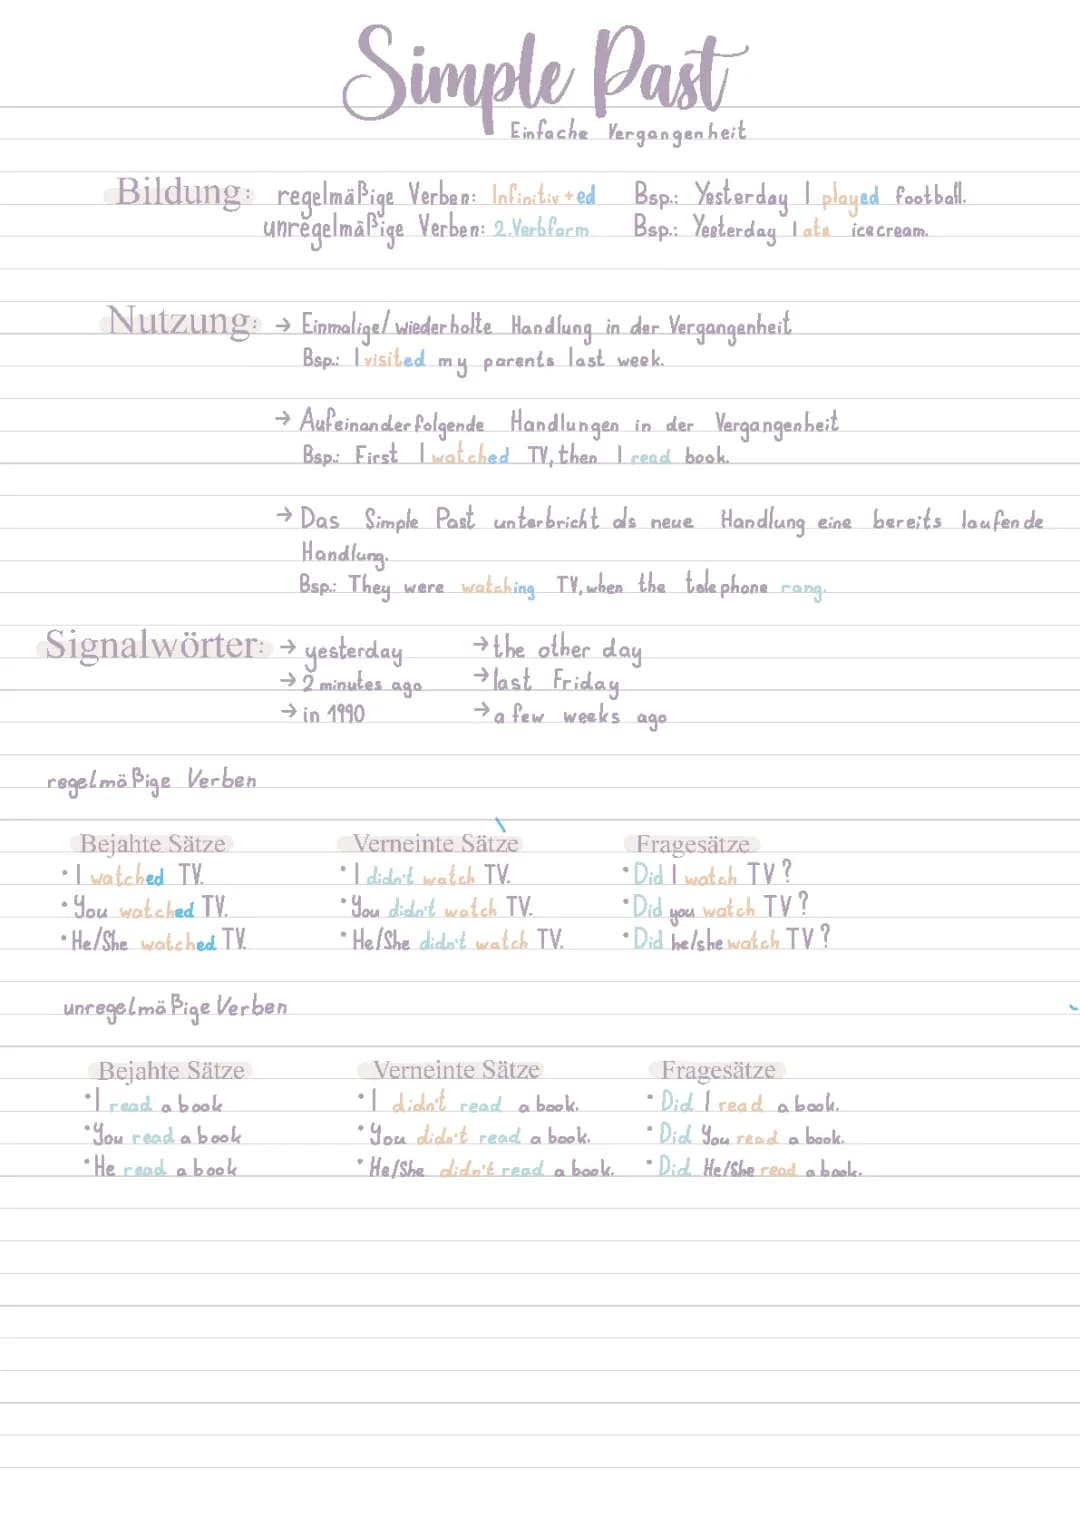 Simple Past
Einfache Vergangenheit
Bildung: regelmäßige Verben: Infinitiv + ed Bsp.: Yesterday I played football.
unregelmäßige Verben: 2.Verbform Bsp.: Yesterday I ate icecream.
Nutzung: → Einmalige/wiederholte Handlung in der Vergangenheit
Bsp.: I visited my parents last week.
→ Aufeinanderfolgende Handlungen in der Vergangenheit
Bsp.: First I watched TV, then I read book.
→ Das Simple Past unterbricht als neue Handlung eine bereits laufende
Handlung.
Bsp.: They were watching TV, when the telephone rang.
Signalwörter: → yesterday → the other day
→ 2 minutes ago → last Friday
→ in 1990 → a few weeks ago
regelmäßige Verben
Bejahte Sätze Verneinte Sätze Fragesätze
• I watched TV. • I didn't watch TV. • Did I watch TV?
• You watched TV. • You didn't watch TV. • Did you watch TV?
• He/She watched TV. • He/She didn't watch TV. • Did he/she watch TV?
unregelmäßige Verben
Bejahte Sätze Verneinte Sätze Fragesätze
• I read a book • I didn't read a book. • Did I read a book.
• You read a book • You didn't read a book. • Did You read a book.
• He read a book • He/She didn't read a book. • Did He/She read a book.